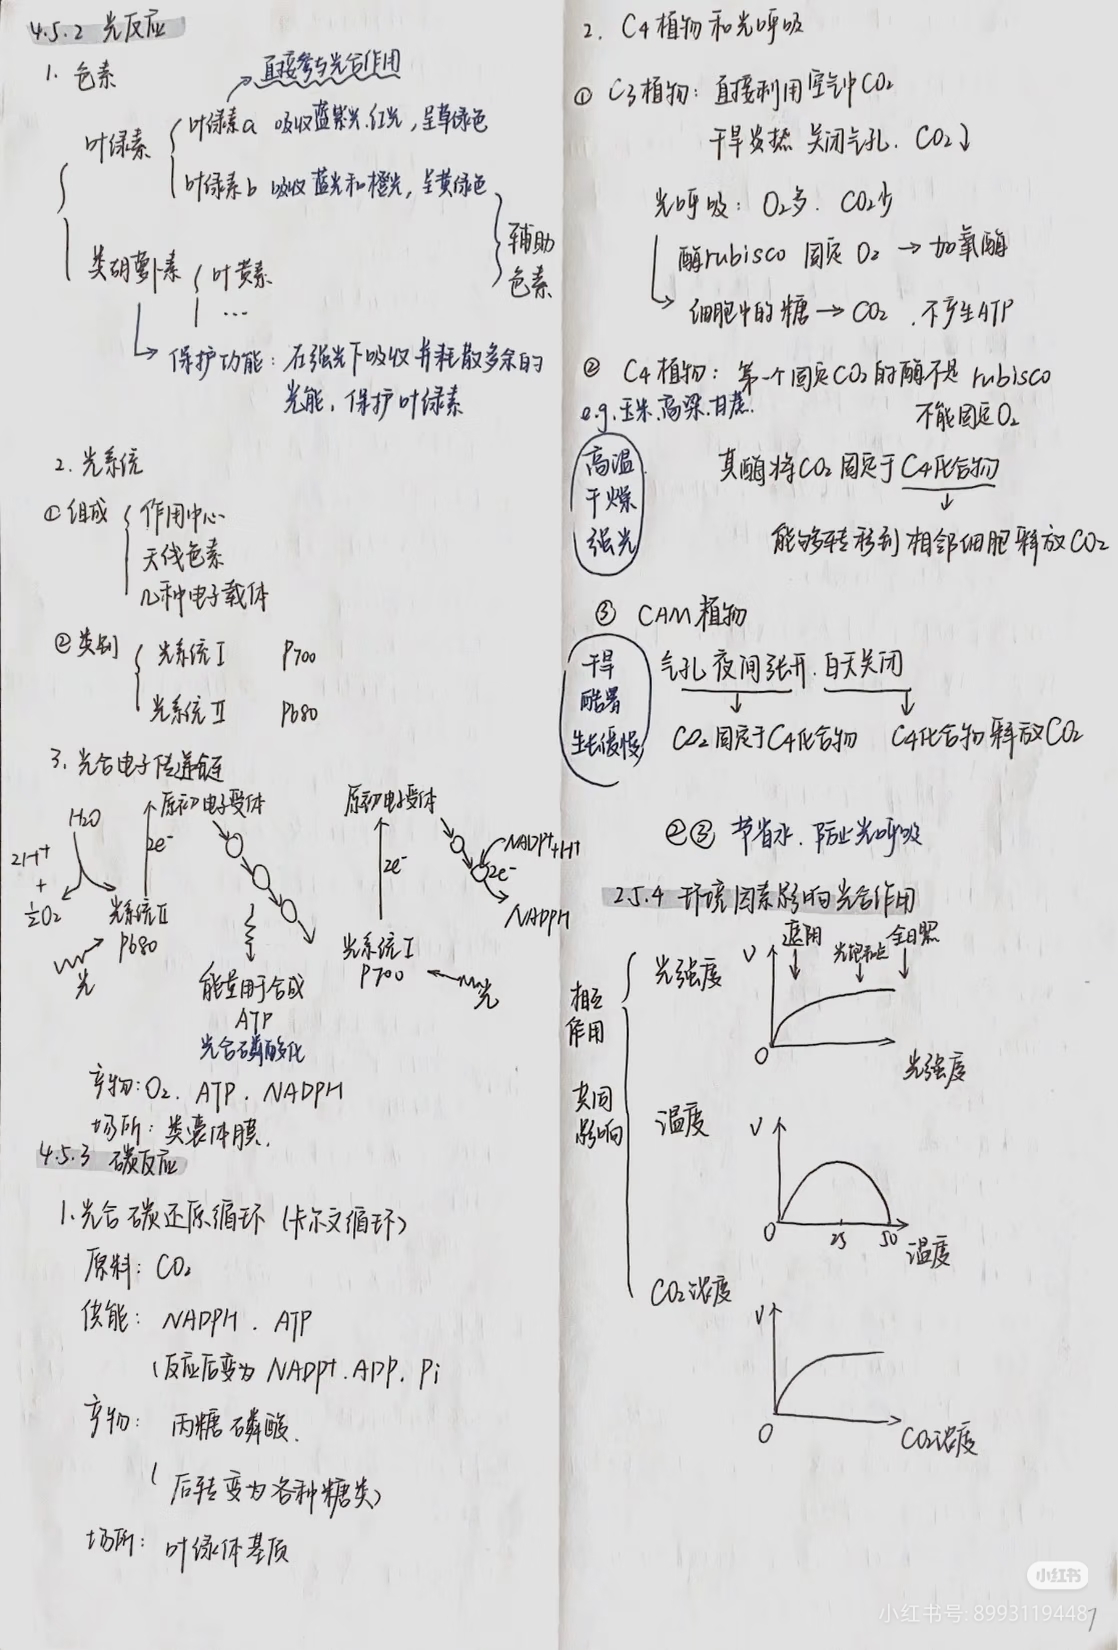 4.5.2 光反应
1. 色素
直接参与光合作用
叶绿素
叶绿素a 吸收蓝紫光.红光，呈草绿色
叶绿素b 吸收蓝光和橙光，呈黄绿色
辅助
色素
类胡萝卜素
叶黄素
...
保护功能：在强光下吸收并耗散多余的
光能，保护叶绿素
2. 光系统
①组成
作用中心
天线色素
几种电子载体
②类别
光系统Ⅰ P700
光系统Ⅱ P680
3. 光合电子传递链
H2O
2H+
+
½O2
光系统Ⅱ
P680
光
2e-
原初电子受体
能量用于合成
ATP
光合磷酸化
原初电子受体
2e-
光系统Ⅰ
P700
光
NADP++H+
2e-
NADPH
产物：O2. ATP. NADPH
场所：类囊体膜.
4.5.3 碳反应
1. 光合碳还原循环（卡尔文循环）
原料：CO2
供能：NADPH. ATP
（反应后变为 NADP+. ADP. Pi
产物：丙糖磷酸.
（后转变为各种糖类）
场所：叶绿体基质
2. C4植物和光呼吸
① C3植物：直接利用空气中CO2
干旱炎热 关闭气孔. CO2↓
光呼吸：O2多. CO2少
酶rubisco 固定O2 → 加氧酶
细胞中的糖→CO2 .不产生ATP
② C4植物：第一个固定CO2的酶不是 rubisco
e.g. 玉米.高粱.甘蔗.
不能固定O2
高温
干燥
强光
其酶将CO2固定于C4化合物
能够转移到相邻细胞释放CO2
③ CAM植物
干旱
酷暑
生长缓慢
气孔夜间张开. 白天关闭
CO2固定于C4化合物 C4化合物释放CO2
②③ 节省水. 防止光呼吸
25.4 环境因素影响光合作用
相互
作用
共同
影响
光强度
V
遮阴
光饱和点
全日照
O
光强度
温度
V
O
25
50
温度
CO2浓度
V
O
CO2浓度
小红书
小红书号: 8993119448